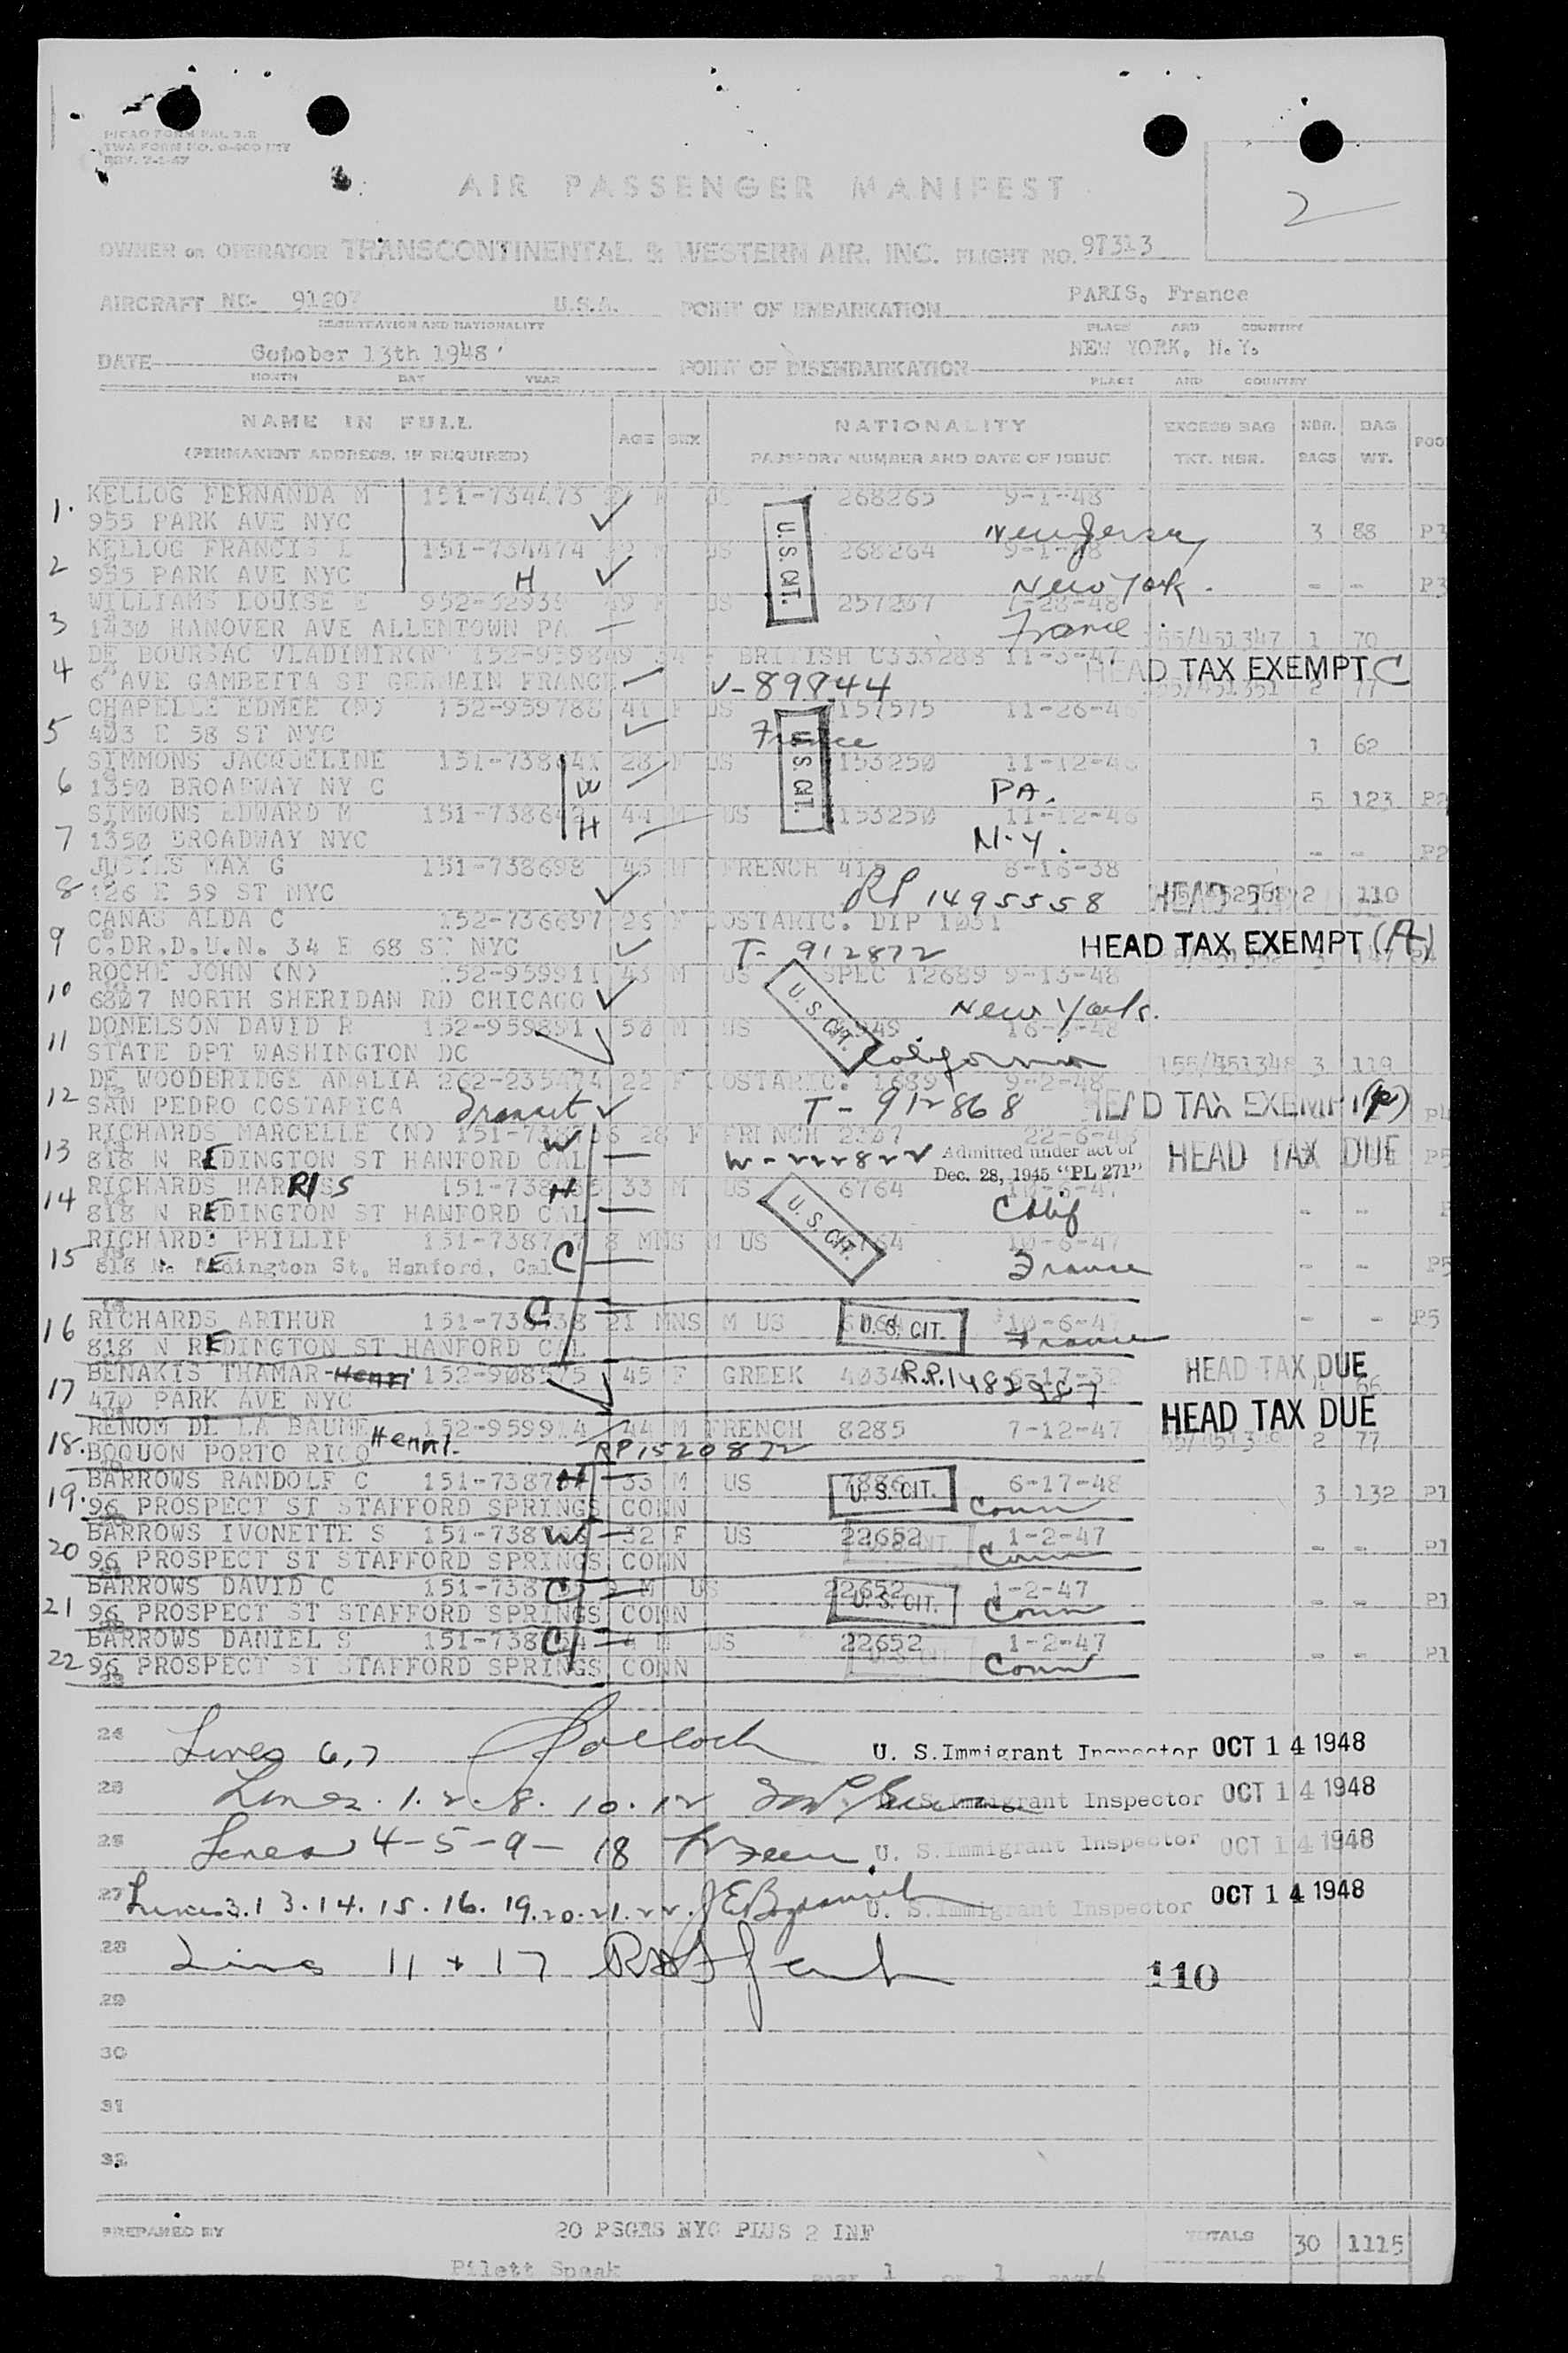 PICAO FORM PAL 3.2
TWA FORM NO. O-400 INT
REV. 7-1-47
2
AIR PASSENGER MANIFEST
OWNER OR OPERATOR TRANSCONTINENTAL & WESTERN AIR, INC. FLIGHT NO. 97313
AIRCRAFT NC- 91207 U.S.A. POINT OF EMBARKATION PARIS, France
REGISTRATION AND NATIONALITY PLACE AND COUNTRY
DATE October 13th 1948 POINT OF DISEMBARKATION NEW YORK, N.Y.
MONTH DAY YEAR PLACE AND COUNTRY
NAME IN FULL AGE SEX NATIONALITY EXCESS BAG NBR. BAG
(PERMANENT ADDRESS, IF REQUIRED) PASSPORT NUMBER AND DATE OF ISSUE TKT. NBR. BAGS WT.
1. KELLOG FERNANDA M 151-734473 US 268265 9-1-48
955 PARK AVE NYC U.S. CIT. New Jersey 3 88 P3
2 KELLOG FRANCIS L 151-734474 US 268264 9-1-48
955 PARK AVE NYC H New York. - - P3
3 WILLIAMS LOUISE E 952-32939 49 F US 257267 7-28-48
1430 HANOVER AVE ALLENTOWN PA France 1 70
4 DE BOURSAC VLADIMIR(N) 152-959849 BRITISH C333288 11-3-47
6 AVE GAMBETTA ST GERMAIN FRANCE V-89844 HEAD TAX EXEMPT C 2 77
5 CHAPELLE EDMEE (N) 152-959788 41 F US 157575 11-26-46
403 E 58 ST NYC France U.S. CIT. 1 62
6 SIMMONS JACQUELINE 151-738641 28 F US 153250 11-12-46
1350 BROADWAY NY C W PA. 5 123 P2
7 SIMMONS EDWARD M 151-738642 44 M US 153250 11-12-46
1350 BROADWAY NYC H N.Y. - - P2
8 MAX G 151-738698 45 M FRENCH 8-16-38
126 E 59 ST NYC RP 1495558 HEAD 2 110
9 CANAS ALDA C 152-736697 COSTARIC. DIP 1051
C.DR.D.U.N. 34 E 68 ST NYC T- 912872 HEAD TAX EXEMPT (A)
10 ROCHE JOHN (N) 152-959911 43 M US SPEC 12689 9-13-48
6807 NORTH SHERIDAN RD CHICAGO U.S. CIT. New York.
11 DONELSON DAVID R 152-959891 50 M US
STATE DPT WASHINGTON DC California 155/451348 3 119
12 DE WOODBRIDGE AMALIA 262-235474 22 F COSTARIC. 1689 9-2-48
SAN PEDRO COSTARICA Transit T- 912868 HEAD TAX EXEMPT
13 RICHARDS MARCELLE (N) 28 F FRENCH 2307 22-6-48
818 N REDINGTON ST HANFORD CAL W Admitted under act of Dec. 28, 1945 "PL 271" HEAD TAX DUE P5
14 RICHARDS HARRIS 33 M US 6764 10-6-47
818 N REDINGTON ST HANFORD CAL H U.S. CIT. Calif - -
15 RICHARDS PHILLIP 8 MNS M US 10-6-47
818 N. REdington St, Hanford, Cal C France - - P5
16 RICHARDS ARTHUR C 21 MNS M US U.S. CIT. 10-6-47 - - P5
818 N REDINGTON ST HANFORD CAL France
17 BENAKIS THAMAR Henri 152-908575 45 F GREEK 4034 R.P. 1482987 HEAD TAX DUE
470 PARK AVE NYC 66
18. RENOM DE LA BAUME Henri. 152-959914 44 M FRENCH 8285 7-12-47 HEAD TAX DUE
BOQUON PORTO RICO RP1520872 2 77
19. BARROWS RANDOLF C H 33 M US 7886 U.S. CIT. 6-17-48
96 PROSPECT ST STAFFORD SPRINGS CONN Conn 3 132 P1
20 BARROWS IVONETTE S W 32 F US 22652 1-2-47
96 PROSPECT ST STAFFORD SPRINGS CONN Conn - - P1
21 BARROWS DAVID C C M US 22652 U.S. CIT. 1-2-47
96 PROSPECT ST STAFFORD SPRINGS CONN Conn - - P1
22 BARROWS DANIEL S C 4 M US 22652 1-2-47
96 PROSPECT ST STAFFORD SPRINGS CONN Conn - - P1
24 Lines 6,7 U. S. Immigrant Inspector OCT 14 1948
25 Lines. 1. 2. 8. 10. 12 U. S. Immigrant Inspector OCT 14 1948
26 Lines 4-5-9- 18 U. S. Immigrant Inspector OCT 14 1948
27 Lines 3. 13. 14. 15. 16. 19. 20. 21. 22. U. S. Immigrant Inspector OCT 14 1948
28 Lines 11 + 17 110
29
30
31
32
PREPARED BY 20 PSGRS NYC PLUS 2 INF TOTALS 30 1115
Pilett Spaak PAGE 1 OF 1 PAGES